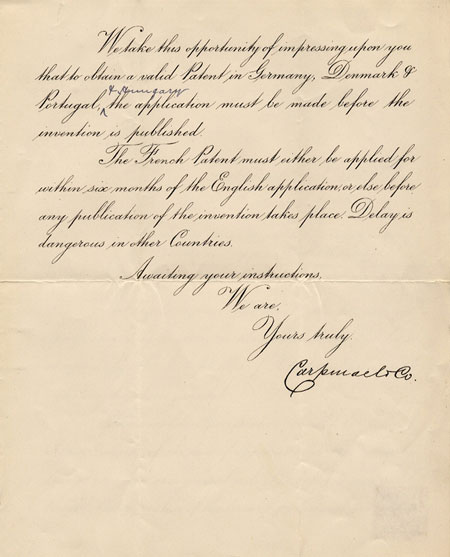 We take this opportunity of impressing upon you
that to obtain a valid Patent in Germany, Denmark &
& Hungary
Portugal, the application must be made before the
invention is published.
The French Patent must either be applied for
within six months of the English application, or else before
any publication of the invention takes place. Delay is
dangerous in other Countries.
Awaiting your instructions,
We are,
Yours truly.
Carpmael & Co.